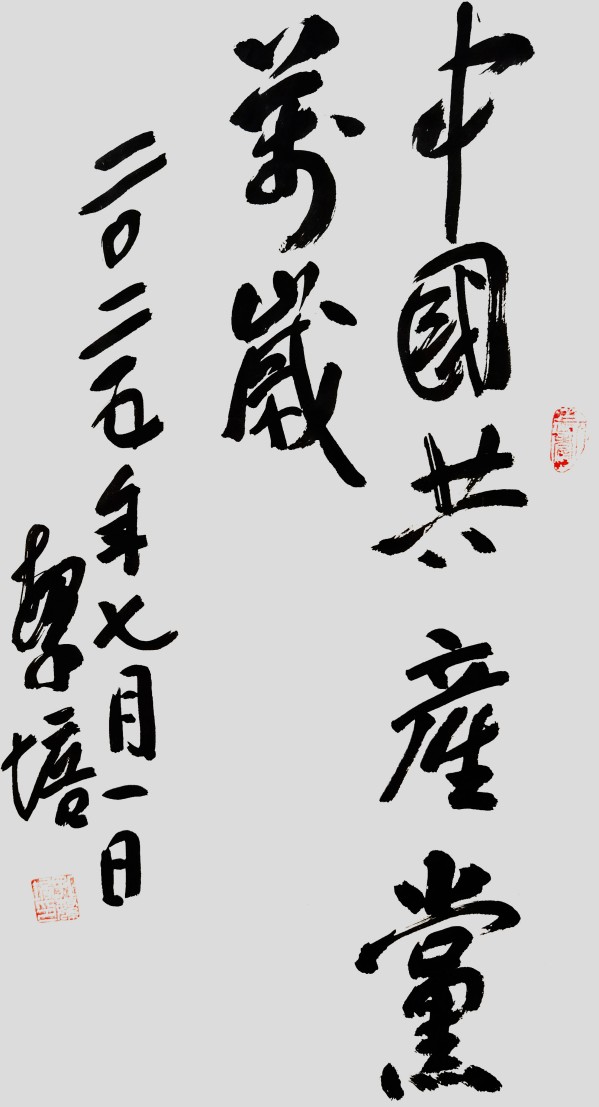 中國共產黨
萬歲
二〇二五年七月一日
培